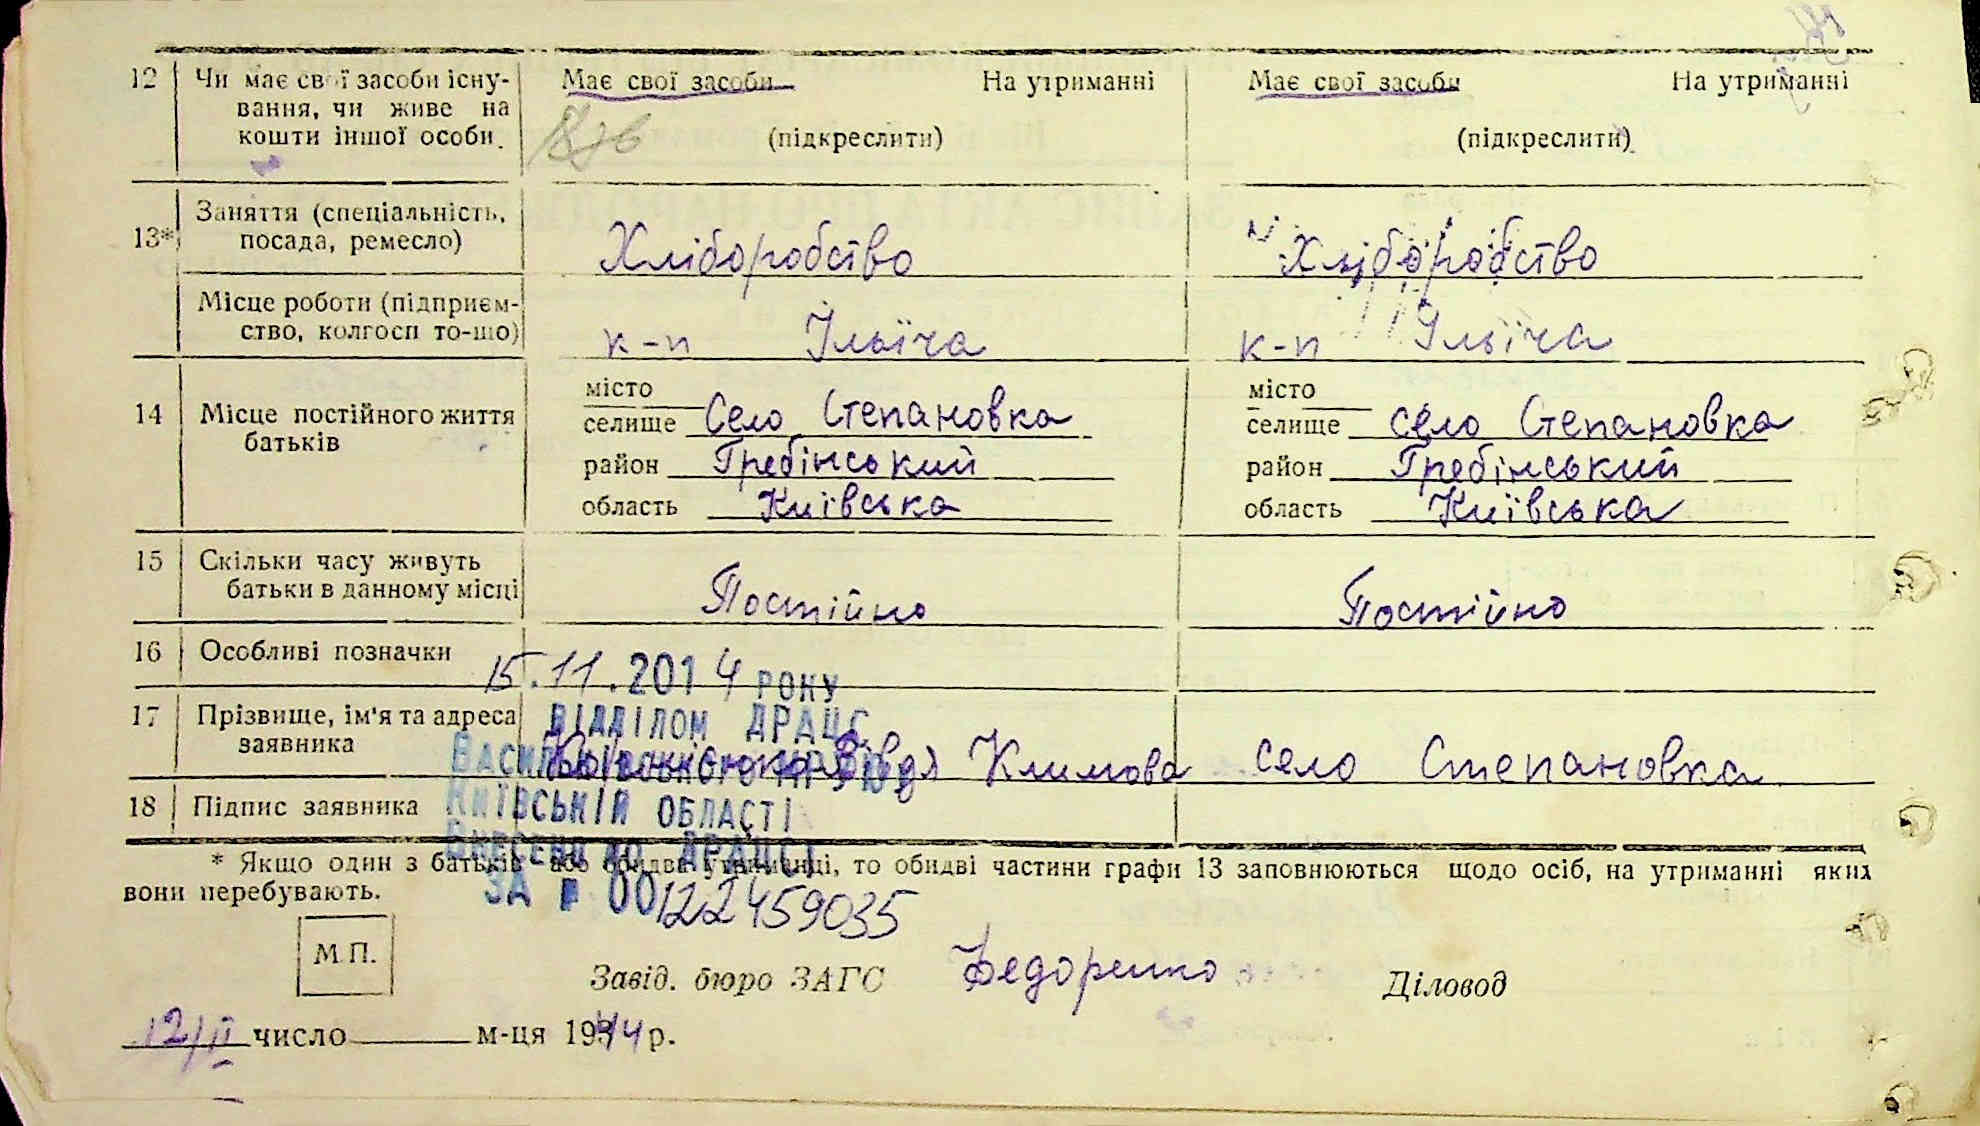 12 Чи має свої засоби існу- Має свої засоби На утриманні Має свої засоби На утриманні
вання, чи живе на
кошти іншої особи. (підкреслити) (підкреслити)
Заняття (спеціальність,
13* посада, ремесло) Хліборобство Хліборобство
Місце роботи (підприєм-
ство, колгосп то-що) к-п Ільїча к-п Ільїча
місто місто
14 Місце постійного життя селище Село Степановка селище село Степановка
батьків
район Гребінський район Гребінський
область Київська область Київська
15 Скільки часу живуть
батьки в данному місці Постійно Постійно
16 Особливі позначки
15.11.2014 РОКУ
17 Прізвище, ім'я та адреса ВІДДІЛОМ ДРАЦС
заявника Климова село Степановка
ВАСИЛЬКІВСЬКОГО МРУЮ
18 Підпис заявника КИЇВСЬКІЙ ОБЛАСТІ
ВНЕСЕНО ДО ДРАЦСГ
* Якщо один з батьків або обидва утриманці, то обидві частини графи 13 заповнюються щодо осіб, на утриманні яких
вони перебувають.
ЗА № 00122459035
М.П.
Завід. бюро ЗАГС Федоренко Діловод
12/II число м-ця 1944 р.